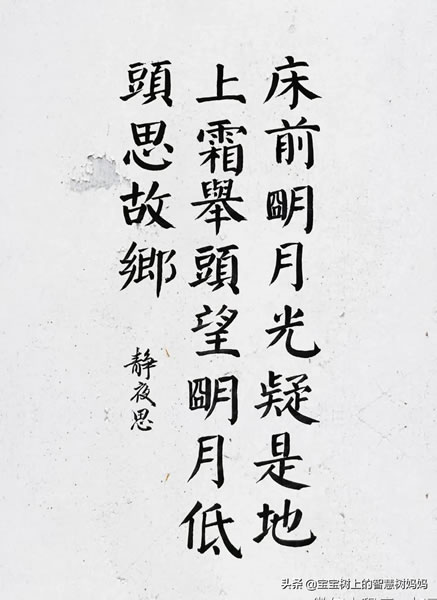 床前朙月光疑是地
上霜舉頭望朙月低
頭思故鄉
静夜思
头条 @宝宝树上的智慧树妈妈